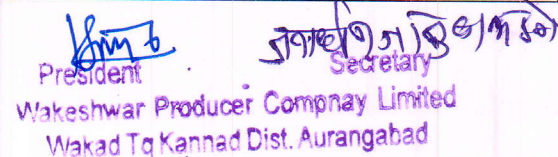 President Secretary
Wakeshwar Producer Compnay Limited
Wakad Tq Kannad Dist. Aurangabad